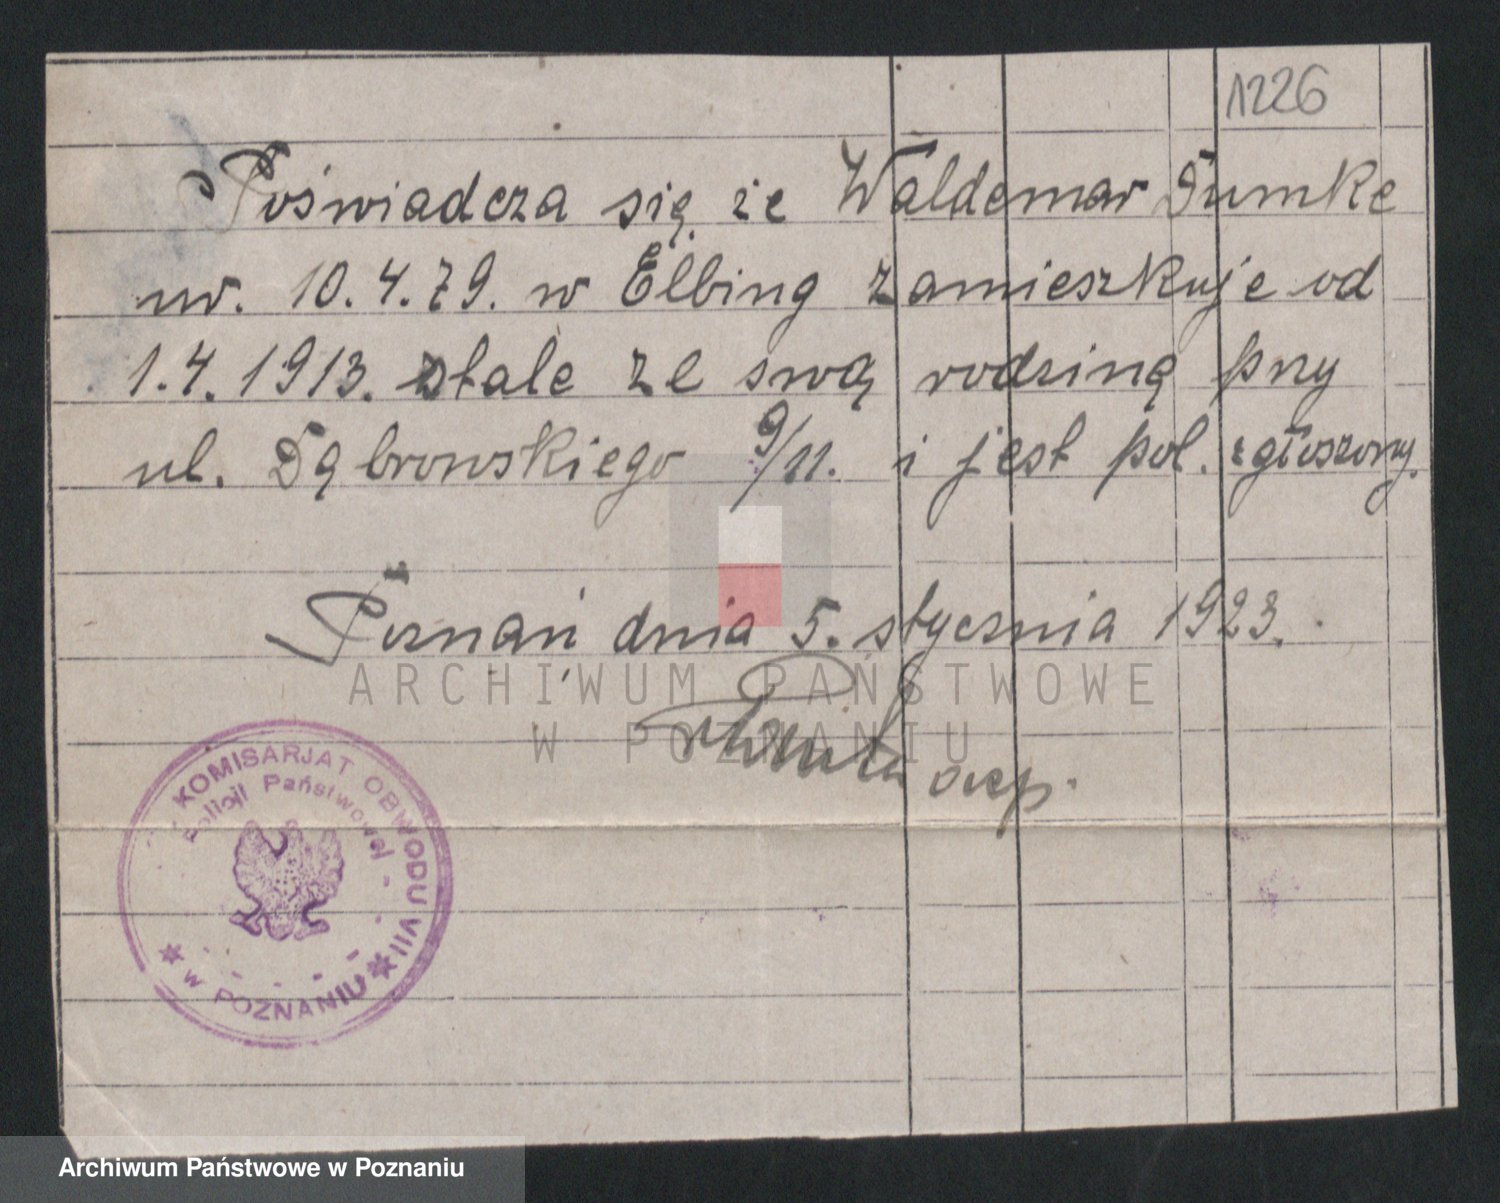 1226
Poświadcza się że Waldemar Dumke
ur. 10.4.79. w Elbing zamieszkuje od
1.4.1913. stale ze swą rodziną przy
ul. Dąbrowskiego 9/11. i jest pol. zgłoszony.
Poznań dnia 5. stycznia 1923.
ARCHIWUM PAŃSTWOWE
W POZNANIU
KOMISARJAT OBWODU VII
Policji Państwowej
w POZNANIU
Archiwum Państwowe w Poznaniu